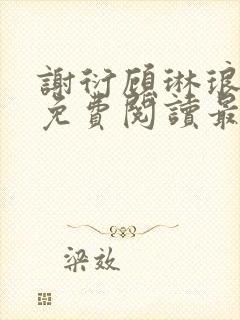 謝衍顧琳琅
免費閱讀最
梁效